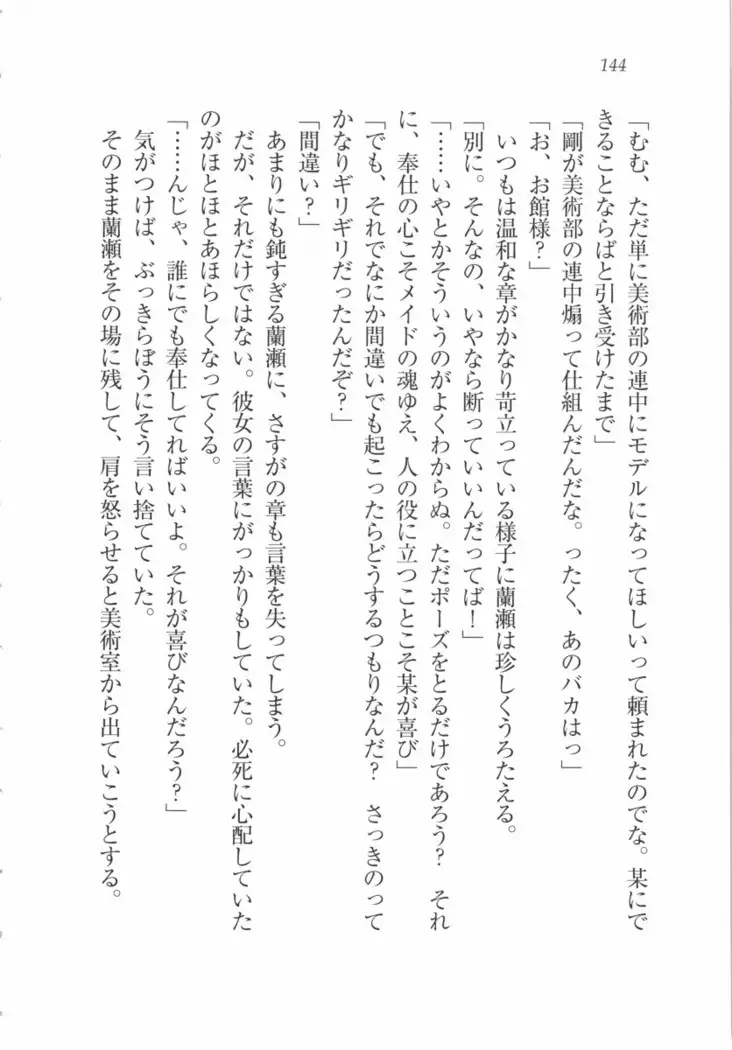 144
「むむ、ただ単に美術部の連中にモデルになってほしいって頼まれたのでな。某にで
きることならばと引き受けたまで」
「剛が美術部の連中煽って仕組んだんだな。ったく、あのバカはっ」
「お、お館様？」
いつもは温和な章がかなり苛立っている様子に蘭瀬は珍しくうろたえる。
「別に。そんなの、いやなら断っていいんだってば！」
「……いやとかそういうのがよくわからぬ。ただポーズをとるだけであろう？　それ
に、奉仕の心こそメイドの魂ゆえ、人の役に立つことこそ某が喜び」
「でも、それでなにか間違いでも起こったらどうするつもりなんだ？　さっきのって
かなりギリギリだったんだぞ？」
「間違い？」
あまりにも鈍すぎる蘭瀬に、さすがの章も言葉を失ってしまう。
だが、それだけではない。彼女の言葉にがっかりもしていた。必死に心配していた
のがほとほとあほらしくなってくる。
「……んじゃ、誰にでも奉仕してればいいよ。それが喜びなんだろう？」
気がつけば、ぶっきらぼうにそう言い捨てていた。
そのまま蘭瀬をその場に残して、肩を怒らせると美術室から出ていこうとする。